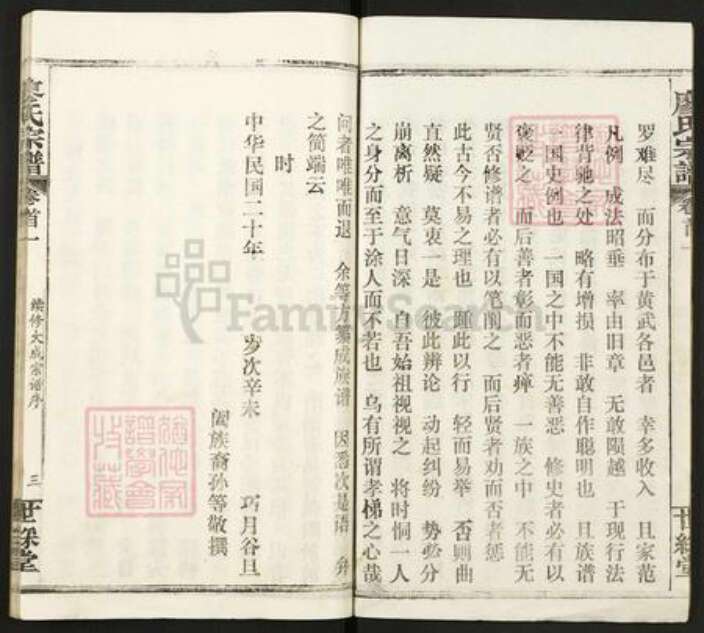 罗难尽　而分布于黄武各邑者　幸多收入　且家范
凡例　成法昭垂　率由旧章　无敢陨越　于现行法
律背驰之处　略有增损　非敢自作聪明也　且族谱
一国史例也　一国之中不能无善恶　修史者必有以
褒贬之　而后善者彰而恶者瘅　一族之中　不能无
贤否修谱者必有以笔削之　而后贤者劝而否者惩
此古今不易之理也　踵此以行　轻而易举　否则曲
直然疑　莫衷一是　彼此辨论　动起纠纷　势必分
崩离析　意气日深　自吾始祖视视之　将时恫一人
之身分而至于涂人而不若也　乌有所谓孝悌之心哉
问者唯唯而退　余等方纂成族谱　因悉次是语　弁
之简端云
时
中华民国二十年　岁次辛未　巧月谷旦
阖族裔孙等敬撰
氏宗谱
卷首一
续修大成宗谱序
三
世彩堂
FamilySearch